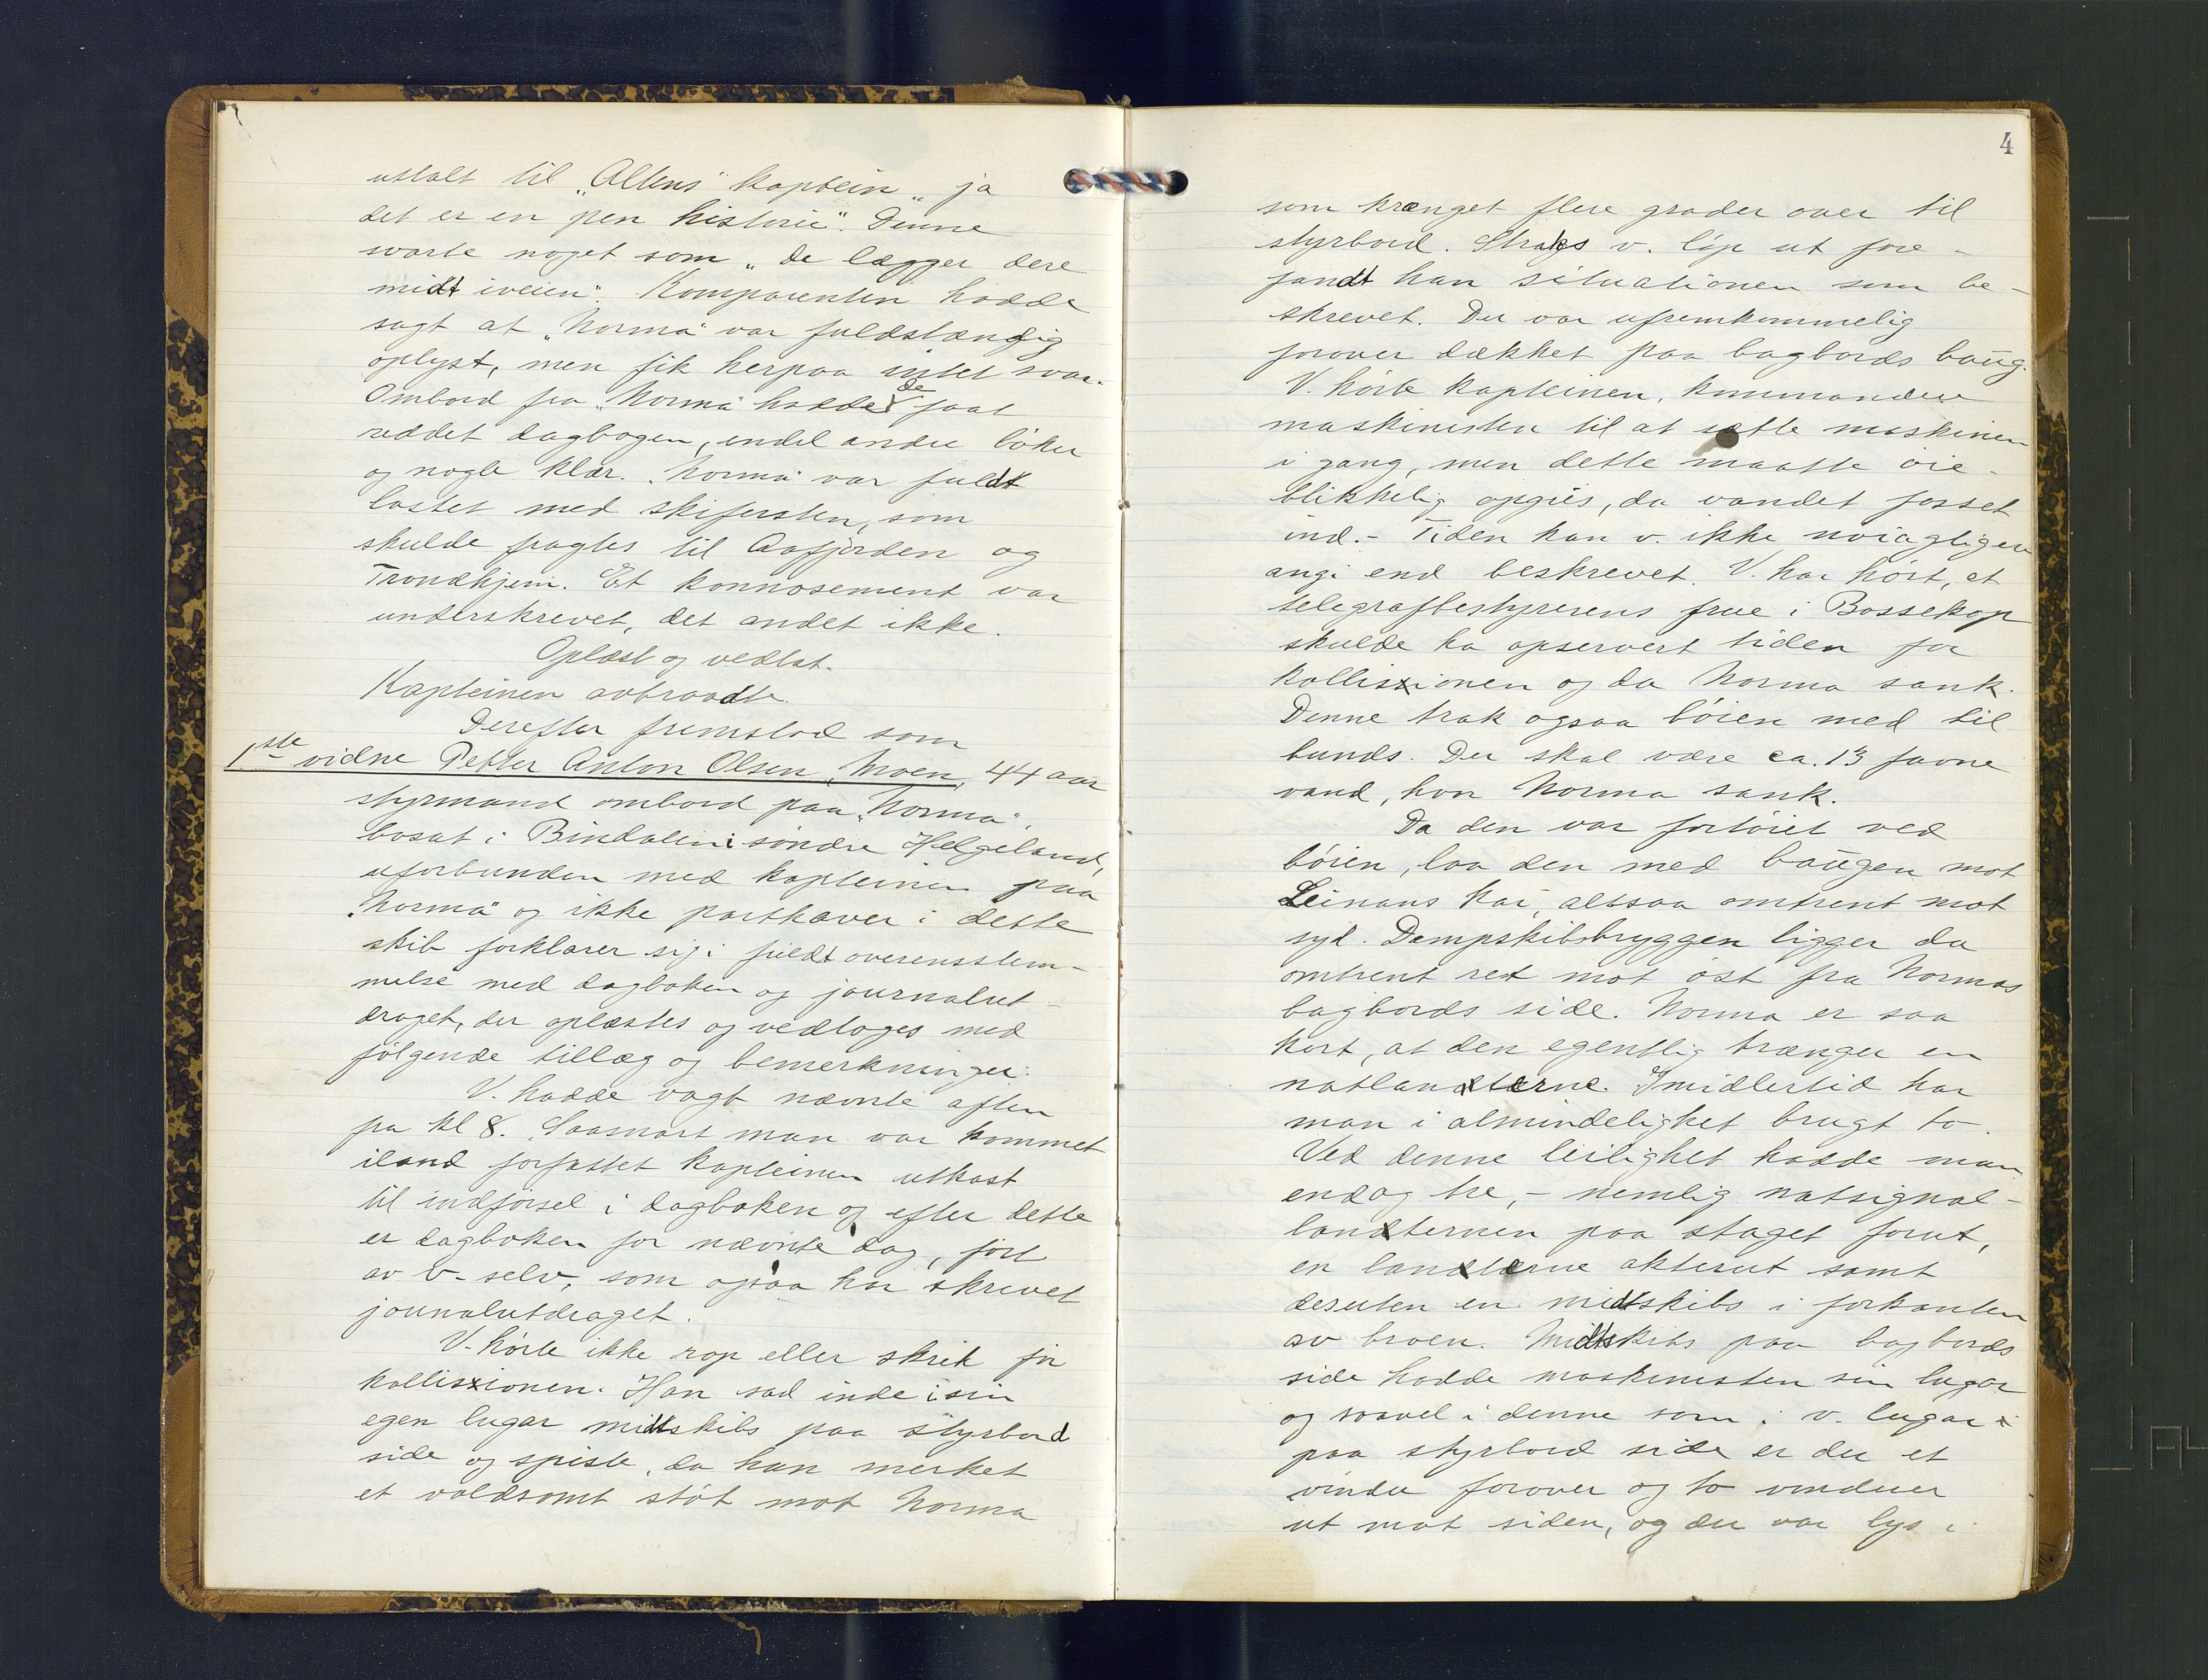 uttalt til „Altens" kaptein „ja
det er en pen historie". Denne
svarte noget som „de lægger dere
midt iveien". Komparenten hadde
sagt at „Norma" var fuldstændig
oplyst, men fik herpaa intet svar.
Ombord fra „Norma" hadde de faat
reddet dagbogen, endel andre bøker
og nogle klær. „Norma" var fuldt
lastet med skifersten, som
skulde fragtes til Aafjorden og
Trondhjem. Et konnosement var
underskrevet, det andet ikke.
Oplæst og vedtat.
Kapteinen avtraadte.
Derefter fremstod som
1ste vidne Petter Anton Olsen, Moen, 44 aar
styrmand ombord paa „Norma",
bosat i Bindalen i søndre Helgeland,
uforbunden med kapteinen paa
„Norma" og ikke parthaver i dette
skib forklarer sig i fuldt overensstem-
melse med dagboken og journalut-
draget, der oplæstes og vedtoges med
følgende tillæg og bemerkninger:
V. hadde vagt nævnte aften
fra kl 8. Saasnart man var kommet
iland forfattet kapteinen utkast
til indførsel i dagboken og efter dette
er dagboken for nævnte dag, ført
av v. selv, som ogsaa har skrevet
journalutdraget.
V. hørte ikke rop eller skrik før
kollisionen. Han sad inde i sin
egen lugar midtskibs paa styrbord
side og spiste, da han merket
et voldsomt støt mot Norma
4
som krænget flere grader over til
styrbord. Straks v. løp ut fore-
fandt han situationen som be-
skrevet. Der var ufremkommelig
forover dækket paa bagbords baug.
V. hørte kapteinen, kommandere
maskinisten til at sætte maskinen
i gang, men dette maatte øie-
blikkelig opgies, da vandet fosset
ind. - Tiden kan v. ikke nøiagtigere
angi end beskrevet. V. har hørt, at
telegrafbestyrerens frue i Bossekop
skulde ha opservert tiden for
kollisionen og da Norma sank.
Denne trak ogsaa bøien med til
bunds. Der skal være ca. 13 favne
vand, hvor Norma sank.
Da den var fortøiet ved
bøien, laa den med baugen mot
Leinans kai, altsaa omtrent mot
syd. Dampskibsbryggen ligger da
omtrent ret mot øst fra Normas
bagbords side. Norma er saa
kort, at den egentlig trænger en
natlanterne. Imidlertid har
man i almindelighet brugt to.
Ved denne leilighet hadde man
endog tre, - nemlig natsignal-
lanternen paa staget forut,
en lanterne akterut samt
desuten en midtskibs i forkanten
av broen. Midtskibs paa bagbords
side hadde maskinisten sin lugar
og saavel i denne som i v. lugar
paa styrbord side er der et
vindu forover og to vinduer
ut mot siden, og der var lys i